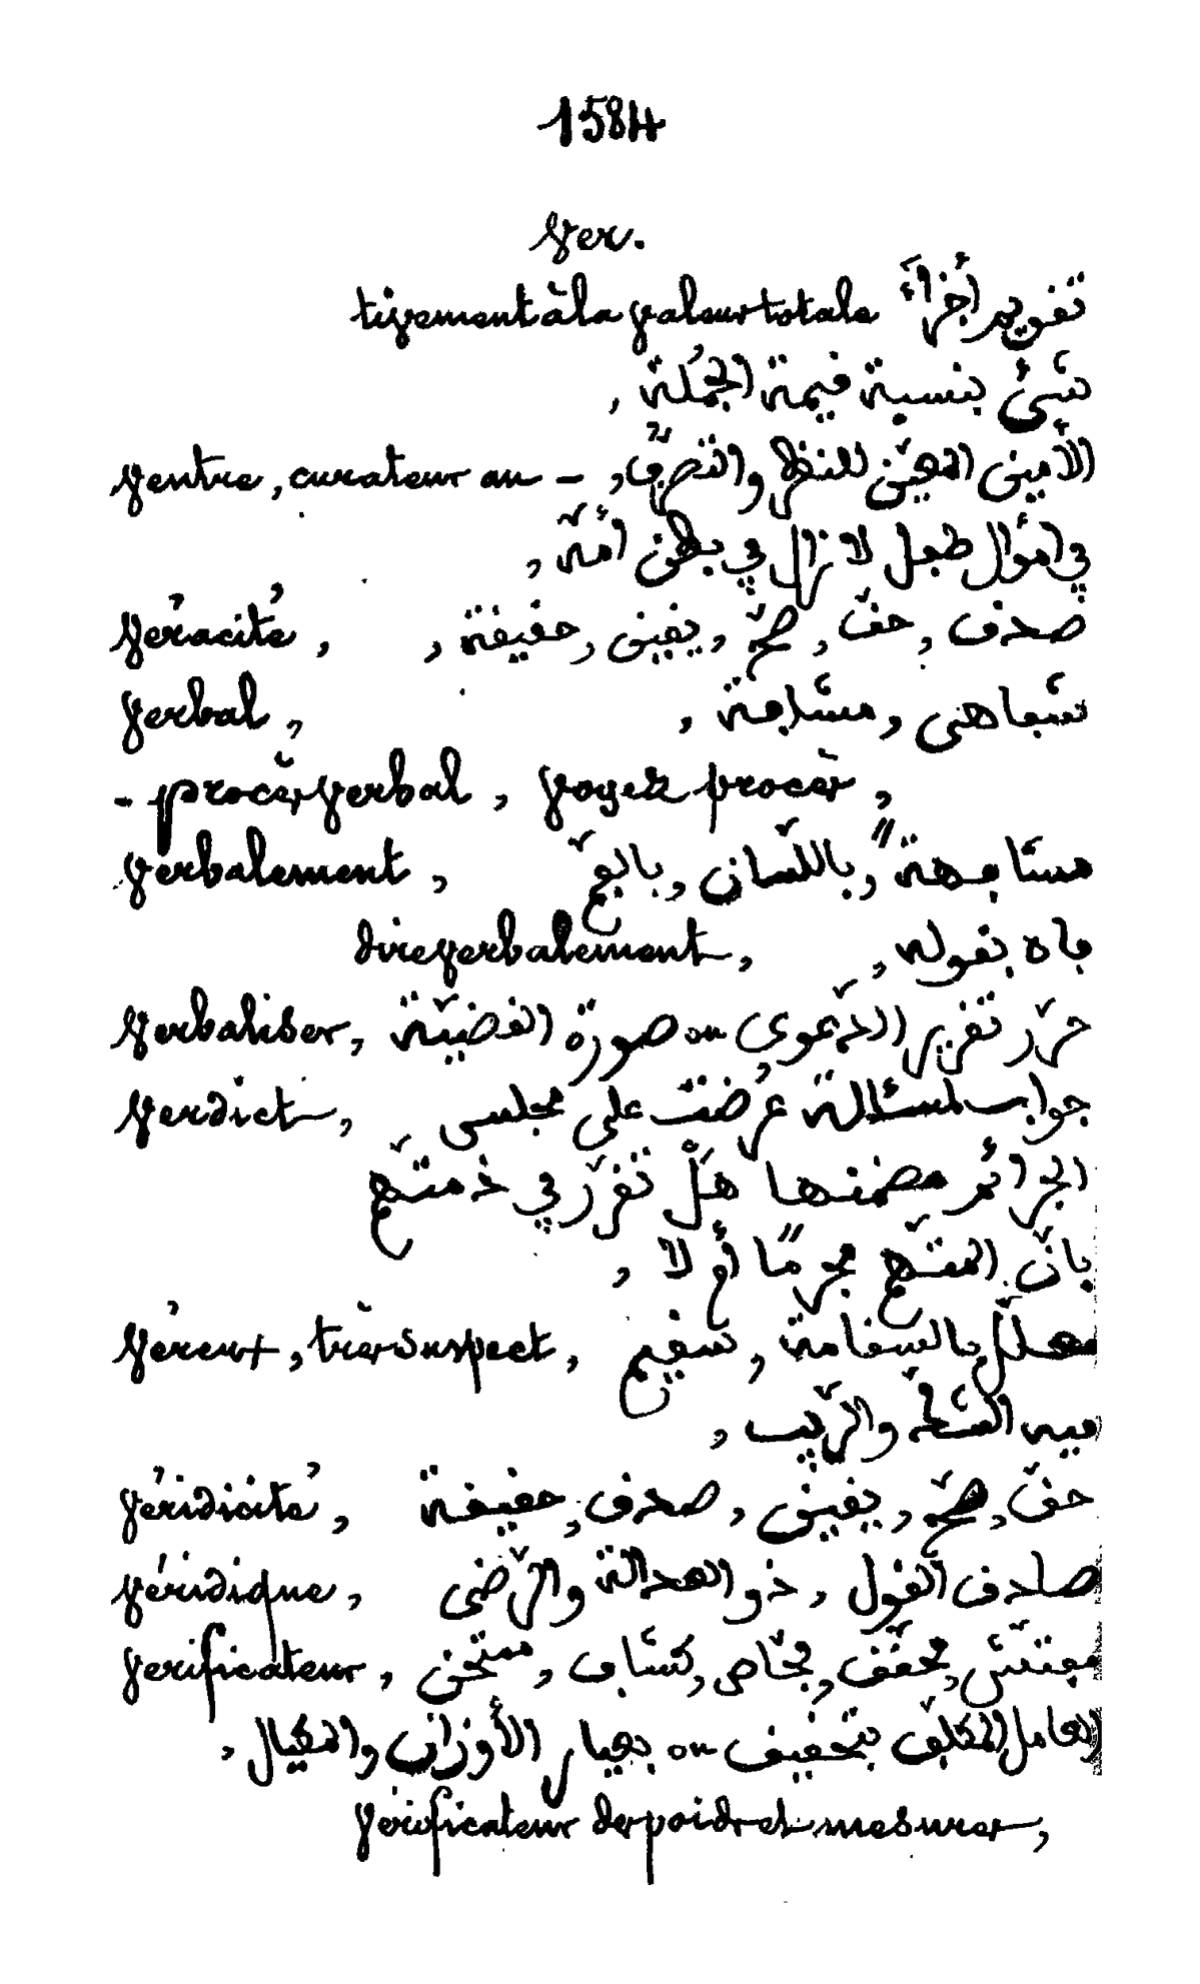 1584
Ver.
tivement à la valeur totale تقويم أجزاء
شيء بنسبة قيمة الجملة ,
ventre, curateur au - , الأمين المعيّن للنظر والتصرّف
في أموال طفل لا نزال في بطن أمّه ,
véracité , صدق , حقّ , صحّ , يقين , حقيقة ,
verbal , شفاهي , مشافهة ,
- procès verbal , voyez procès ,
verbalement , مشافهةً , باللّسان , بالفمّ
dire verbalement , فاه بقوله ,
verbaliser , حرّر تقرير الدّعوى ou صورة القضيّة
verdict , جواب لمسئالة عُرضت على مجلس
الجرائم مضمنها هَلْ تقرّر في ذمّتهم
بانّ المتّهم مجرمًا أم لا ,
véreux , très suspect , معلّل بالسقامة , سقيم
فيه الشّكّ والرّيب ,
véridicité , حقّ , صحّ , يقين , صدق , حقيقة
véridique , صادق القول , ذو العدالة والرّضى
verificateur , مفتّش , محقّق , فحّاص , كشّاف , ممتحن
العامل المكلّف بتحقيق ou بعيار الأوزان والمكيال ,
vérificateur des poids et mesures ,